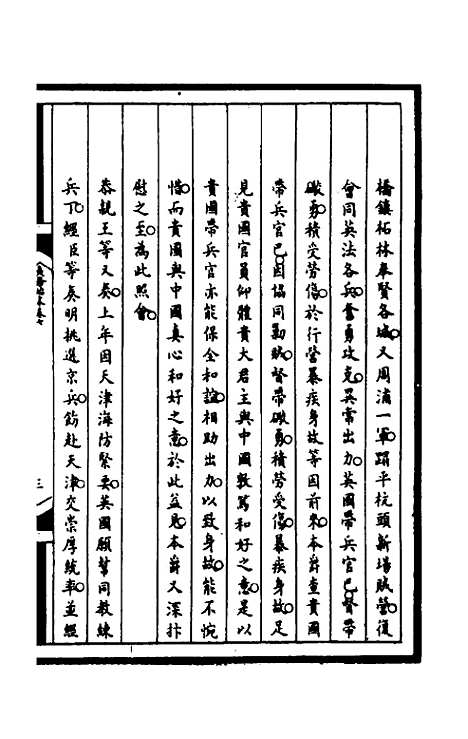 橋鎮柘林奉賢各城又周浦一軍蹋平杭頭新場賊營復
會同英法各兵奮勇攻克異常出力英國帶兵官巴督帶
礮勇積受勞傷於行營暴疾身故等因前來本爵查貴國
帶兵官巴因協同勦賊督帶礮勇積勞受傷暴疾身故足
見貴國官員仰體貴大君主與中國敦篤和好之意是以
貴國帶兵官亦能保全和誼相助出力以致身故能不惋
惜而貴國與中國真心和好之意於此益見本爵又深抃
慰之至為此照會
恭親王等又奏上年因天津海防緊要英國願幫同教練
兵丁經臣等奏明挑選京兵飭赴天津交崇厚統率並經
三